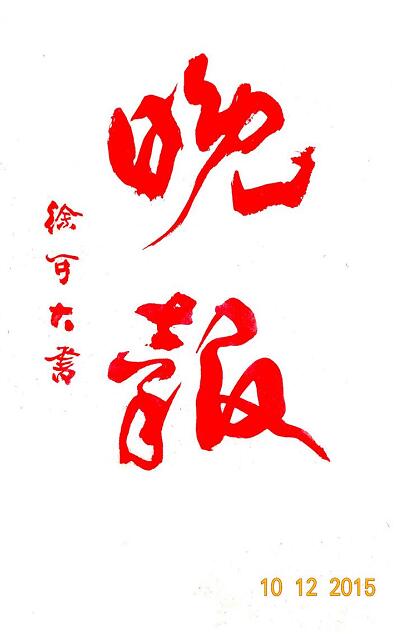 晚報
徐可大書
10 12 2015